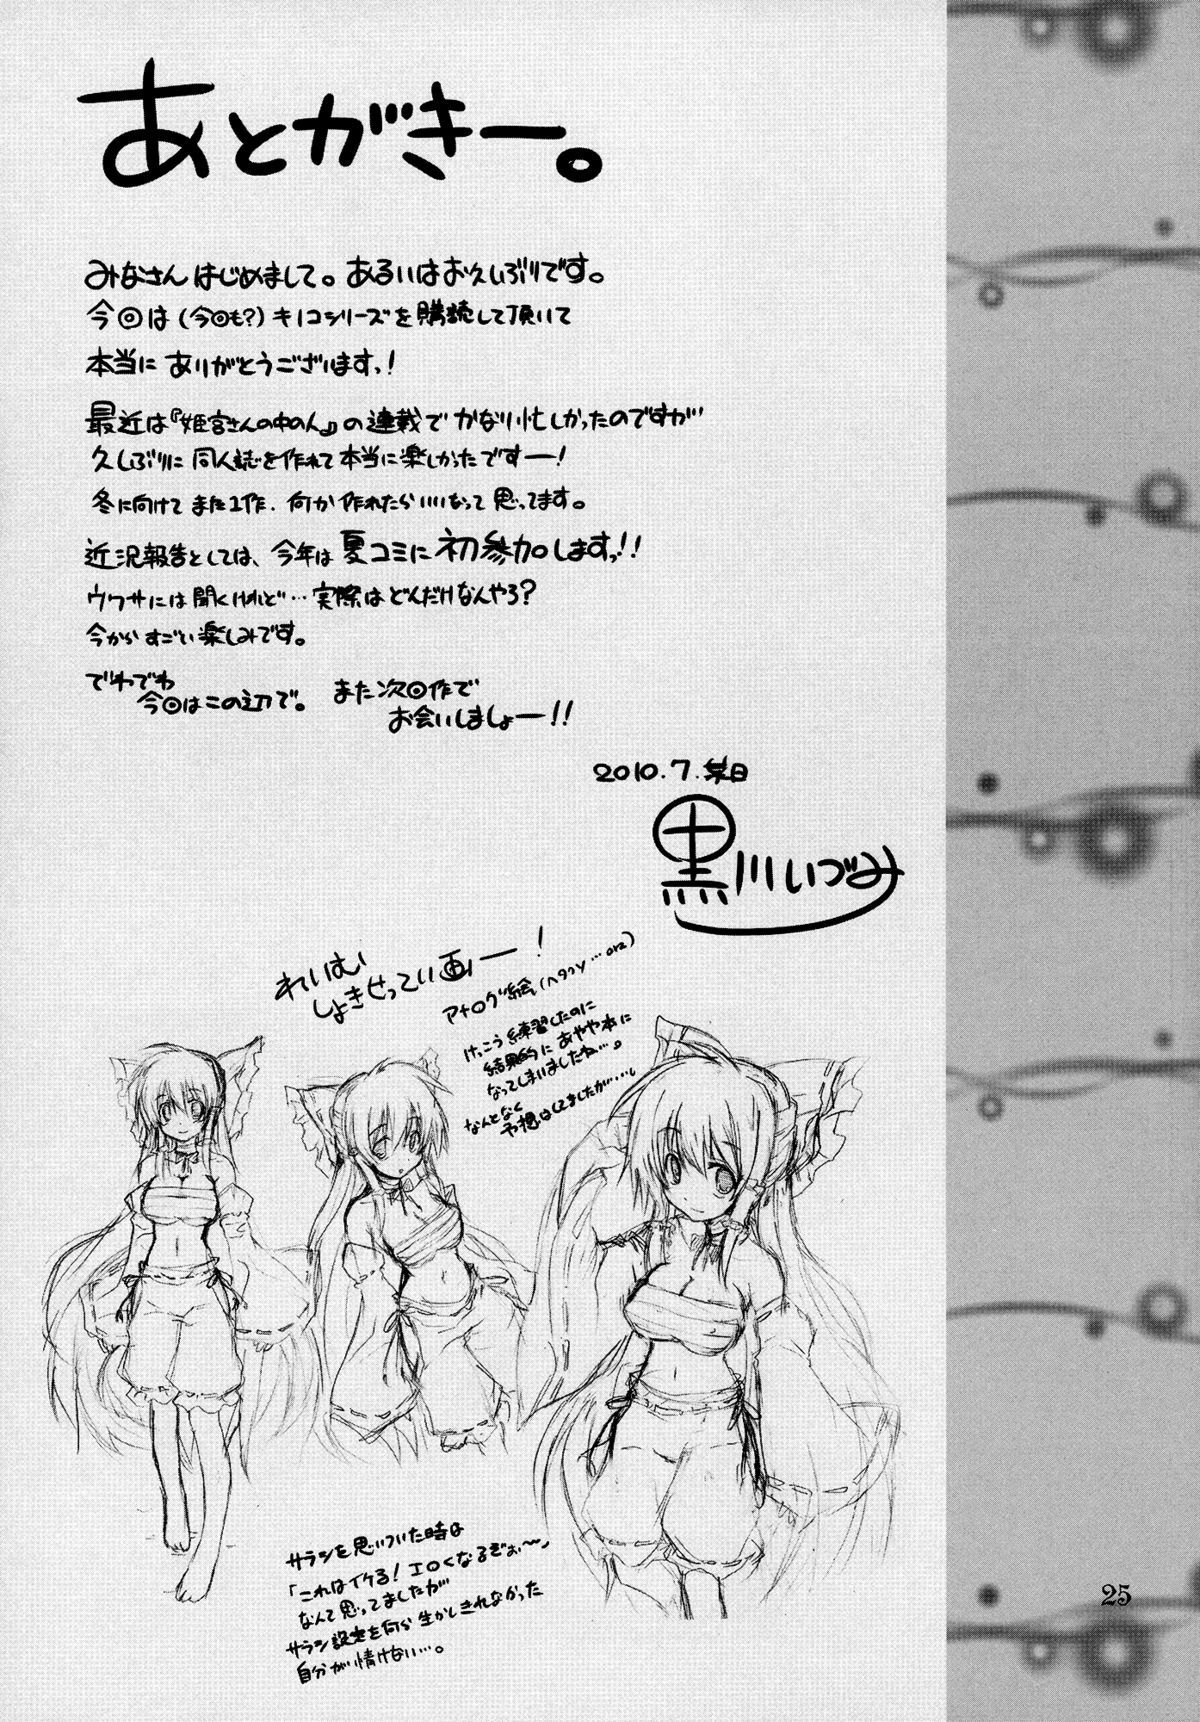 あとがきー。
みなさんはじめまして。あるいはお久しぶりです。
今回は(今回も?)キノコシリーズを購読して頂いて
本当にありがとうございますっ!
最近は『姫宮さんの中の人』の連載でかなり忙しかったのですが
久しぶりに同人誌を作れて本当に楽しかったですー!
冬に向けてまた1作、何か作れたらいいなって思ってます。
近況報告としては、今年は夏コミに初参加しますっ!!
ウワサには聞くけれど…実際はどんだけなんやろ?
今からすごい楽しみです。
でわでわ
今回はこの辺で。
また次回作で
お会いしましょー!!
2010.7.某日
黒川いづみ
れいむい
しょきせってい画ー!
アナログ絵(ヘタクソ…orz)
けっこう練習したのに
結果的にあやや本に
なってしまいましたね…。
なんとなく
予想はしてましたが…。
サラシを思いついた時は
「これはイケる!エロくなるぞぉ〜」
なんて思ってましたが
サラシ設定を何ら生かしきれなかった
自分が情けない…。
25